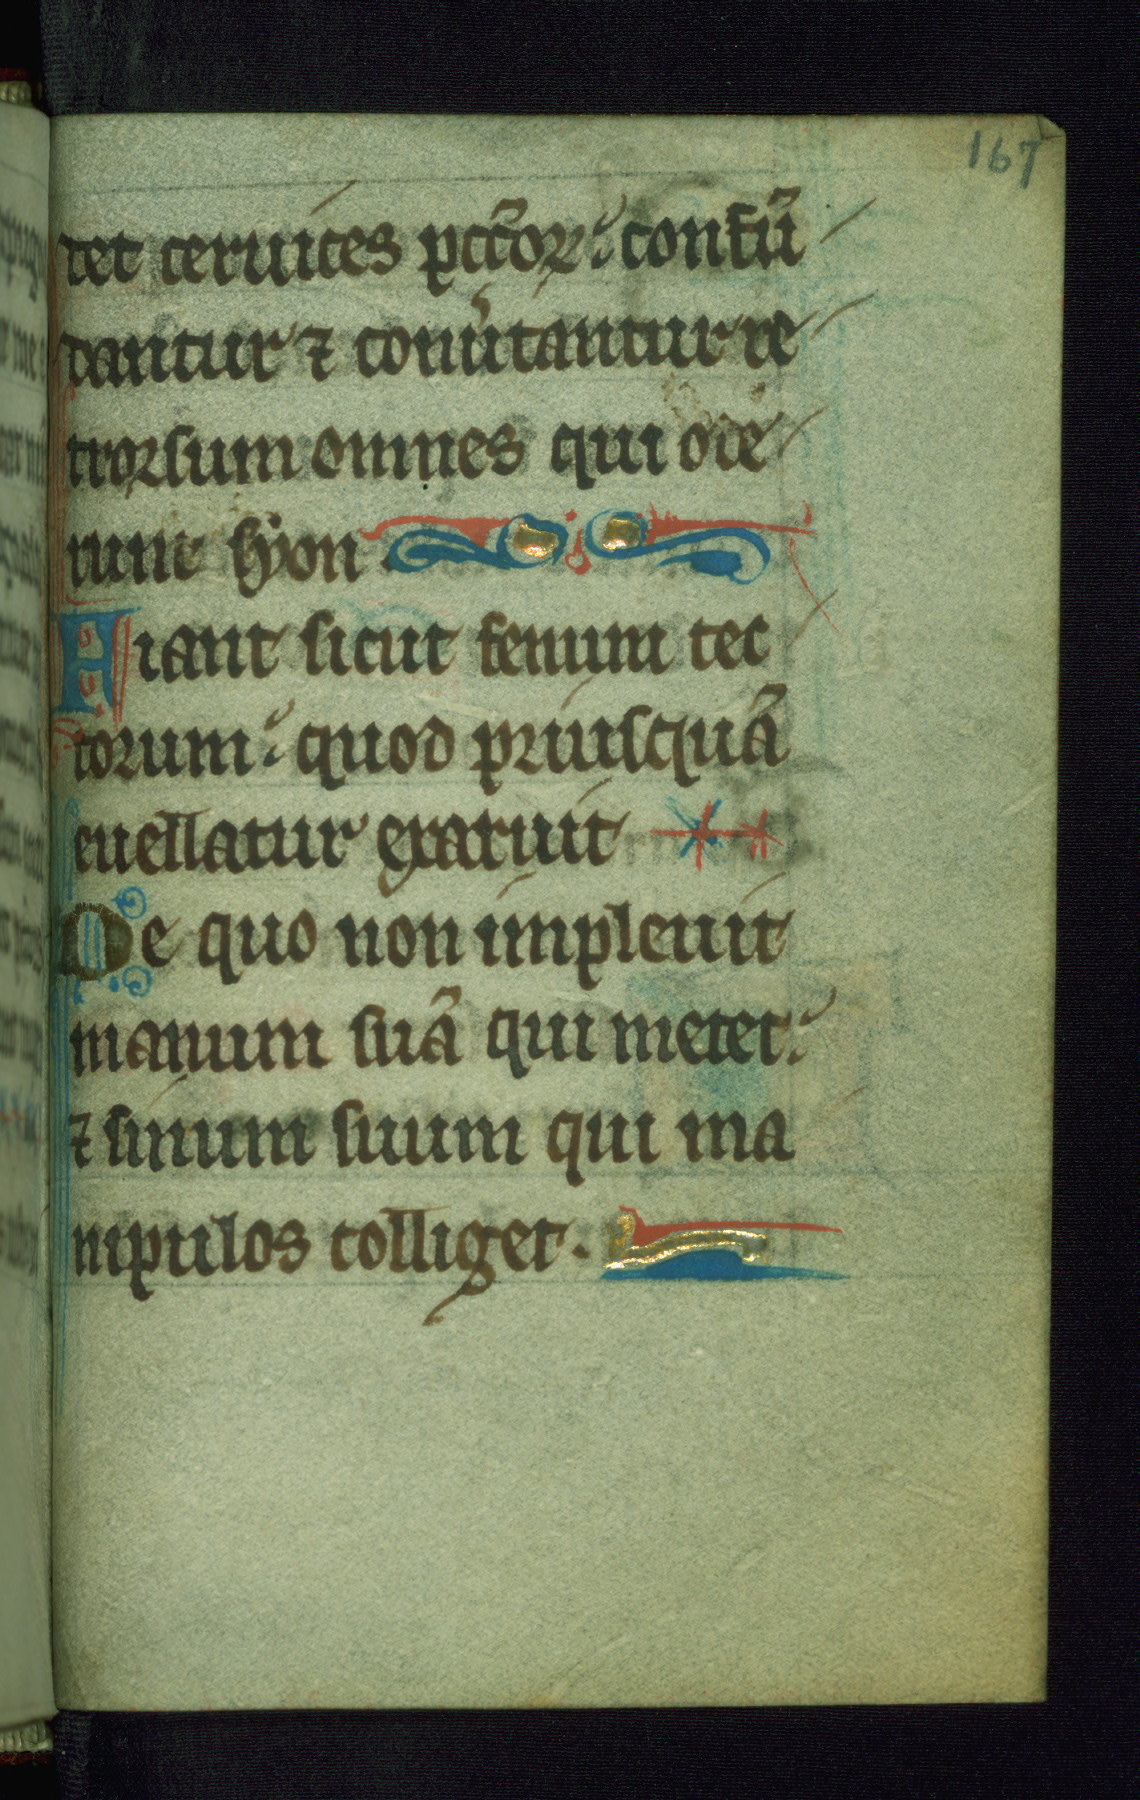 167
det ceruices pctͣoꝝ: confū
dantur ⁊ conu̾tantur re
trorsum omnes qui ode
runt syon
Fiant sicut fenum tec
torum: quod priusquā
euellatur exaruit
De quo non impleuit
manum suā qui metet:
⁊ sinum suum qui ma
nipulos colliget.